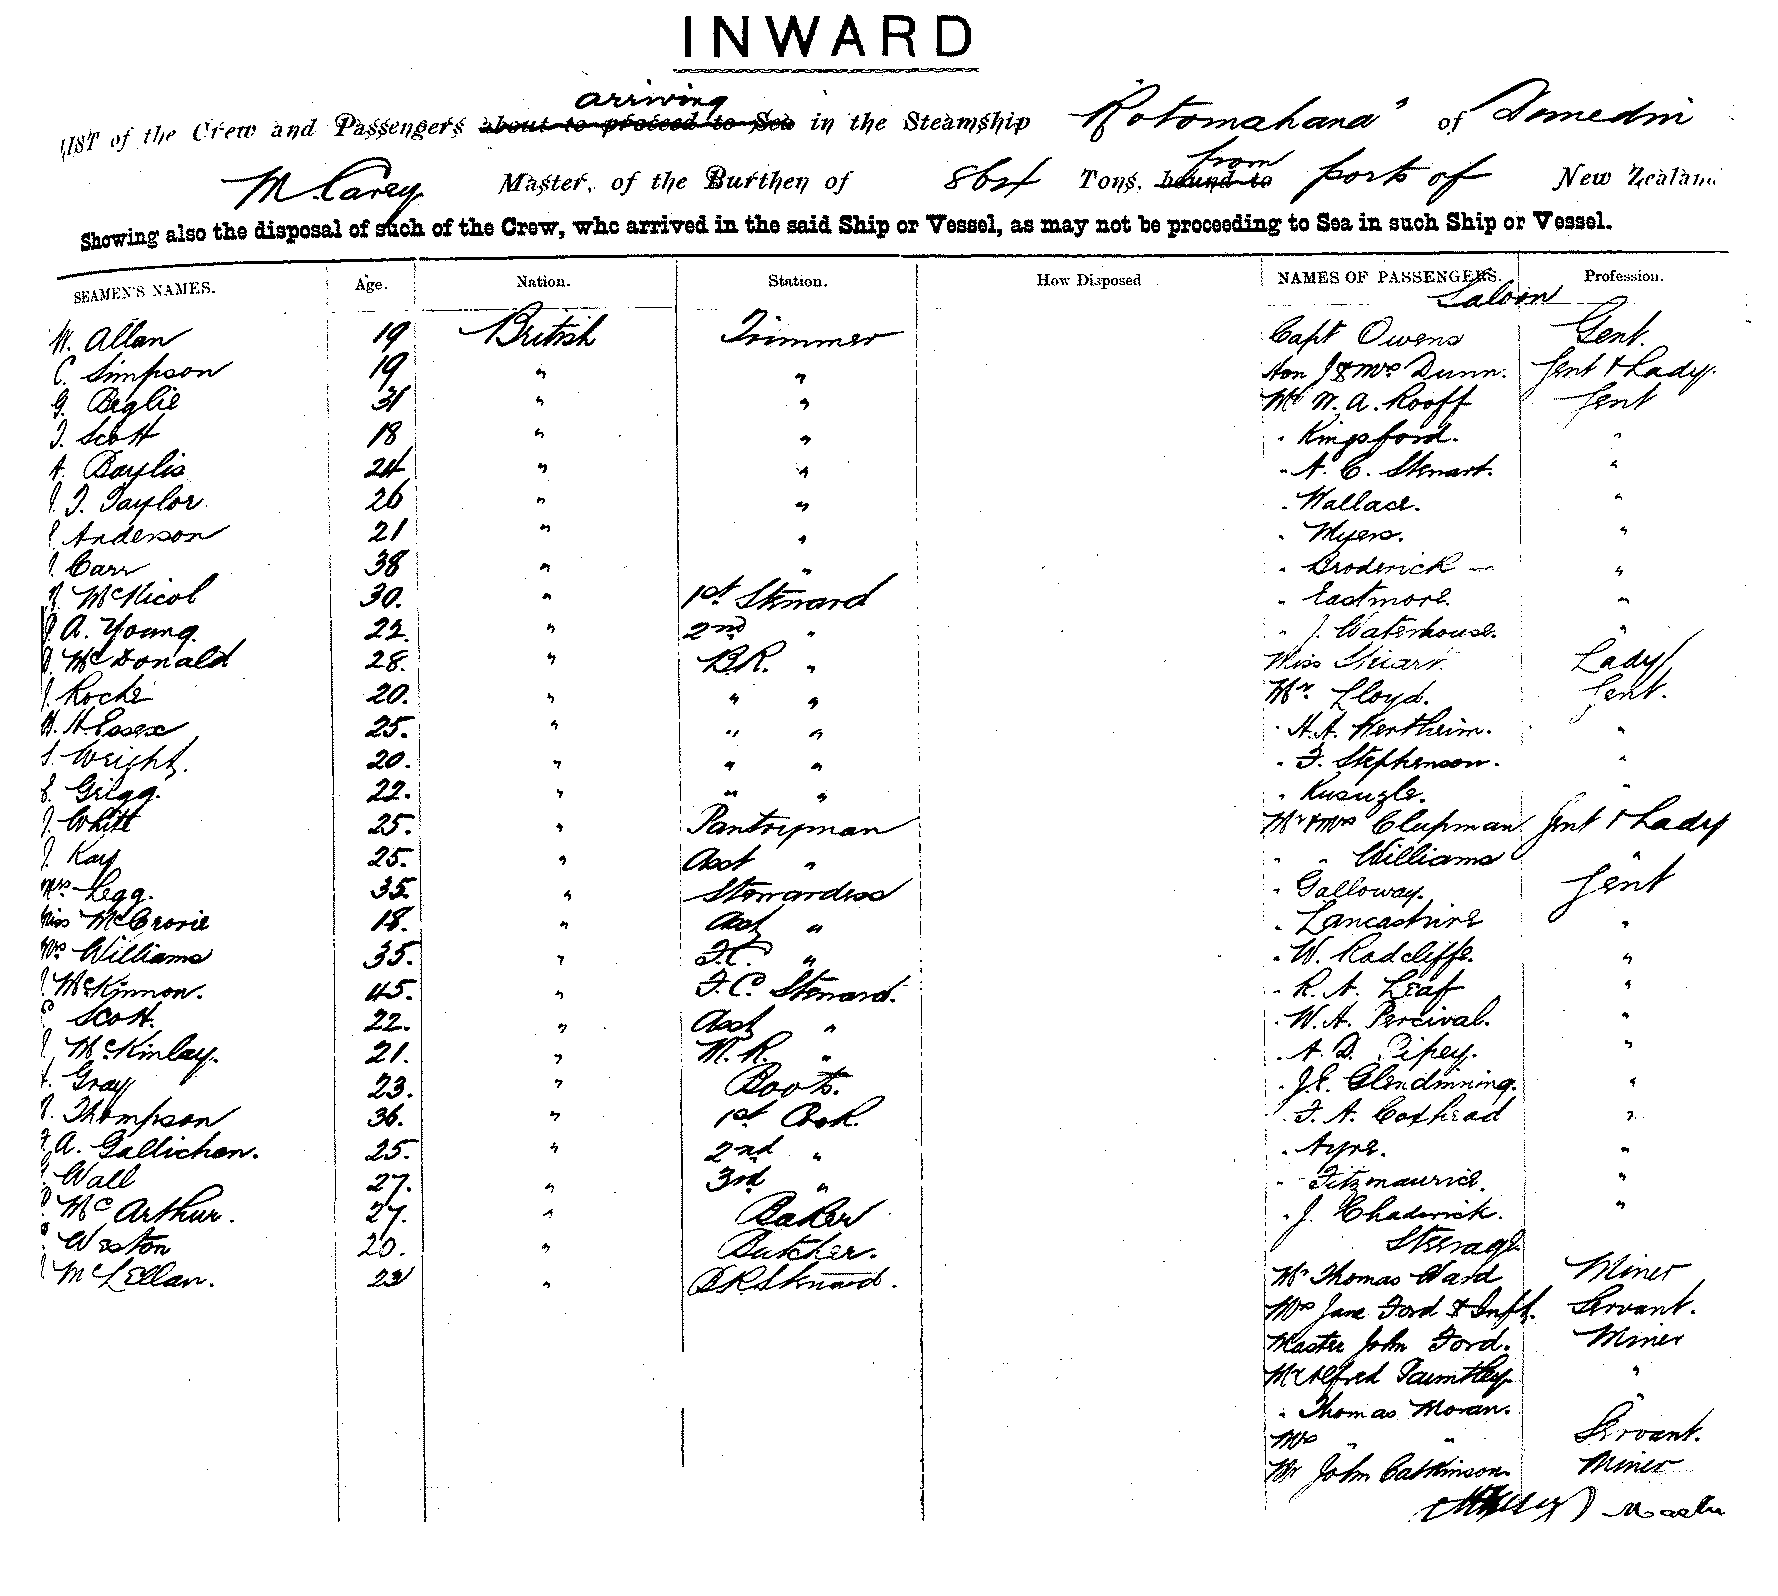 INWARD
arriving
LIST of the Crew and Passengers about to proceed to Sea in the Steamship "Rotomahana" of Dunedin
from
M. Carey Master, of the Burthen of 864 Tons, bound to ports of New Zealand
Showing also the disposal of such of the Crew, who arrived in the said Ship or Vessel, as may not be proceeding to Sea in such Ship or Vessel.
SEAMEN'S NAMES. Age. Nation. Station. How Disposed NAMES OF PASSENGERS. Profession.
Saloon
W. Allan 19 British Trimmer Capt Owens Gent.
C. Simpson 19 " " Hon J & Mrs Dunn. Gent & Lady.
G. Beglie 31 " " Mr W. A. Rooff Gent
J. Scott 18 " " " Kingsford. "
A. Baylis 24 " " " A. C. Stewart. "
J. T. Taylor 26 " " " Wallace. "
Anderson 21 " " " Myers. "
Carr 38 " " " Broderick "
McNicol 30. " 1st Steward " Eastmore. "
A. Young. 22. " 2nd " " J. Waterhouse. "
McDonald 28. " B.R. " Miss Stuart Lady
J. Roche 20. " " " Mr. Lloyd. Gent.
H. H. Essex 25. " " " " H. A. Wertheim. "
Wright. 20. " " " " F. Stephenson. "
Grigg. 22. " " " " "
J. Whitt 25. " Pantryman Mr & Mrs Clupman Gent & Lady
J. Kay 25. " Asst " " " Williams "
Mrs Legg. 35. " Stewardess " Galloway. Gent
Miss McCrorie 18. " Asst " " Lancashire "
Mrs Williams 35. " F.C. " " W. Radcliffe. "
McKinnon. 45. " F.C. Steward. " R. A. Leaf "
Scott. 22. " Asst " " W. A. Percival. "
McKinlay. 21. " M.R. " " A. D. Pipey. "
Gray 23. " Boots. " J. E. Glendinning. "
Thompson 36. " 1st Cook. " F. A. Coxhead "
A. Gallichan. 25. " 2nd " " Ayre. "
Wall 27. " 3rd " " Fitzmaurice. "
McArthur. 27. " Baker " J. Chadwick. "
Weston 20. " Butcher. Steerage
McLellan. 23 " B.R. Steward. Mr Thomas Ward Miner
Mrs Jane Ford & Inft. Servant.
Master John Ford. Miner
Mr Alfred "
" Thomas Moran. "
Mrs " " Servant.
Mr John Catkinson. Miner
Master